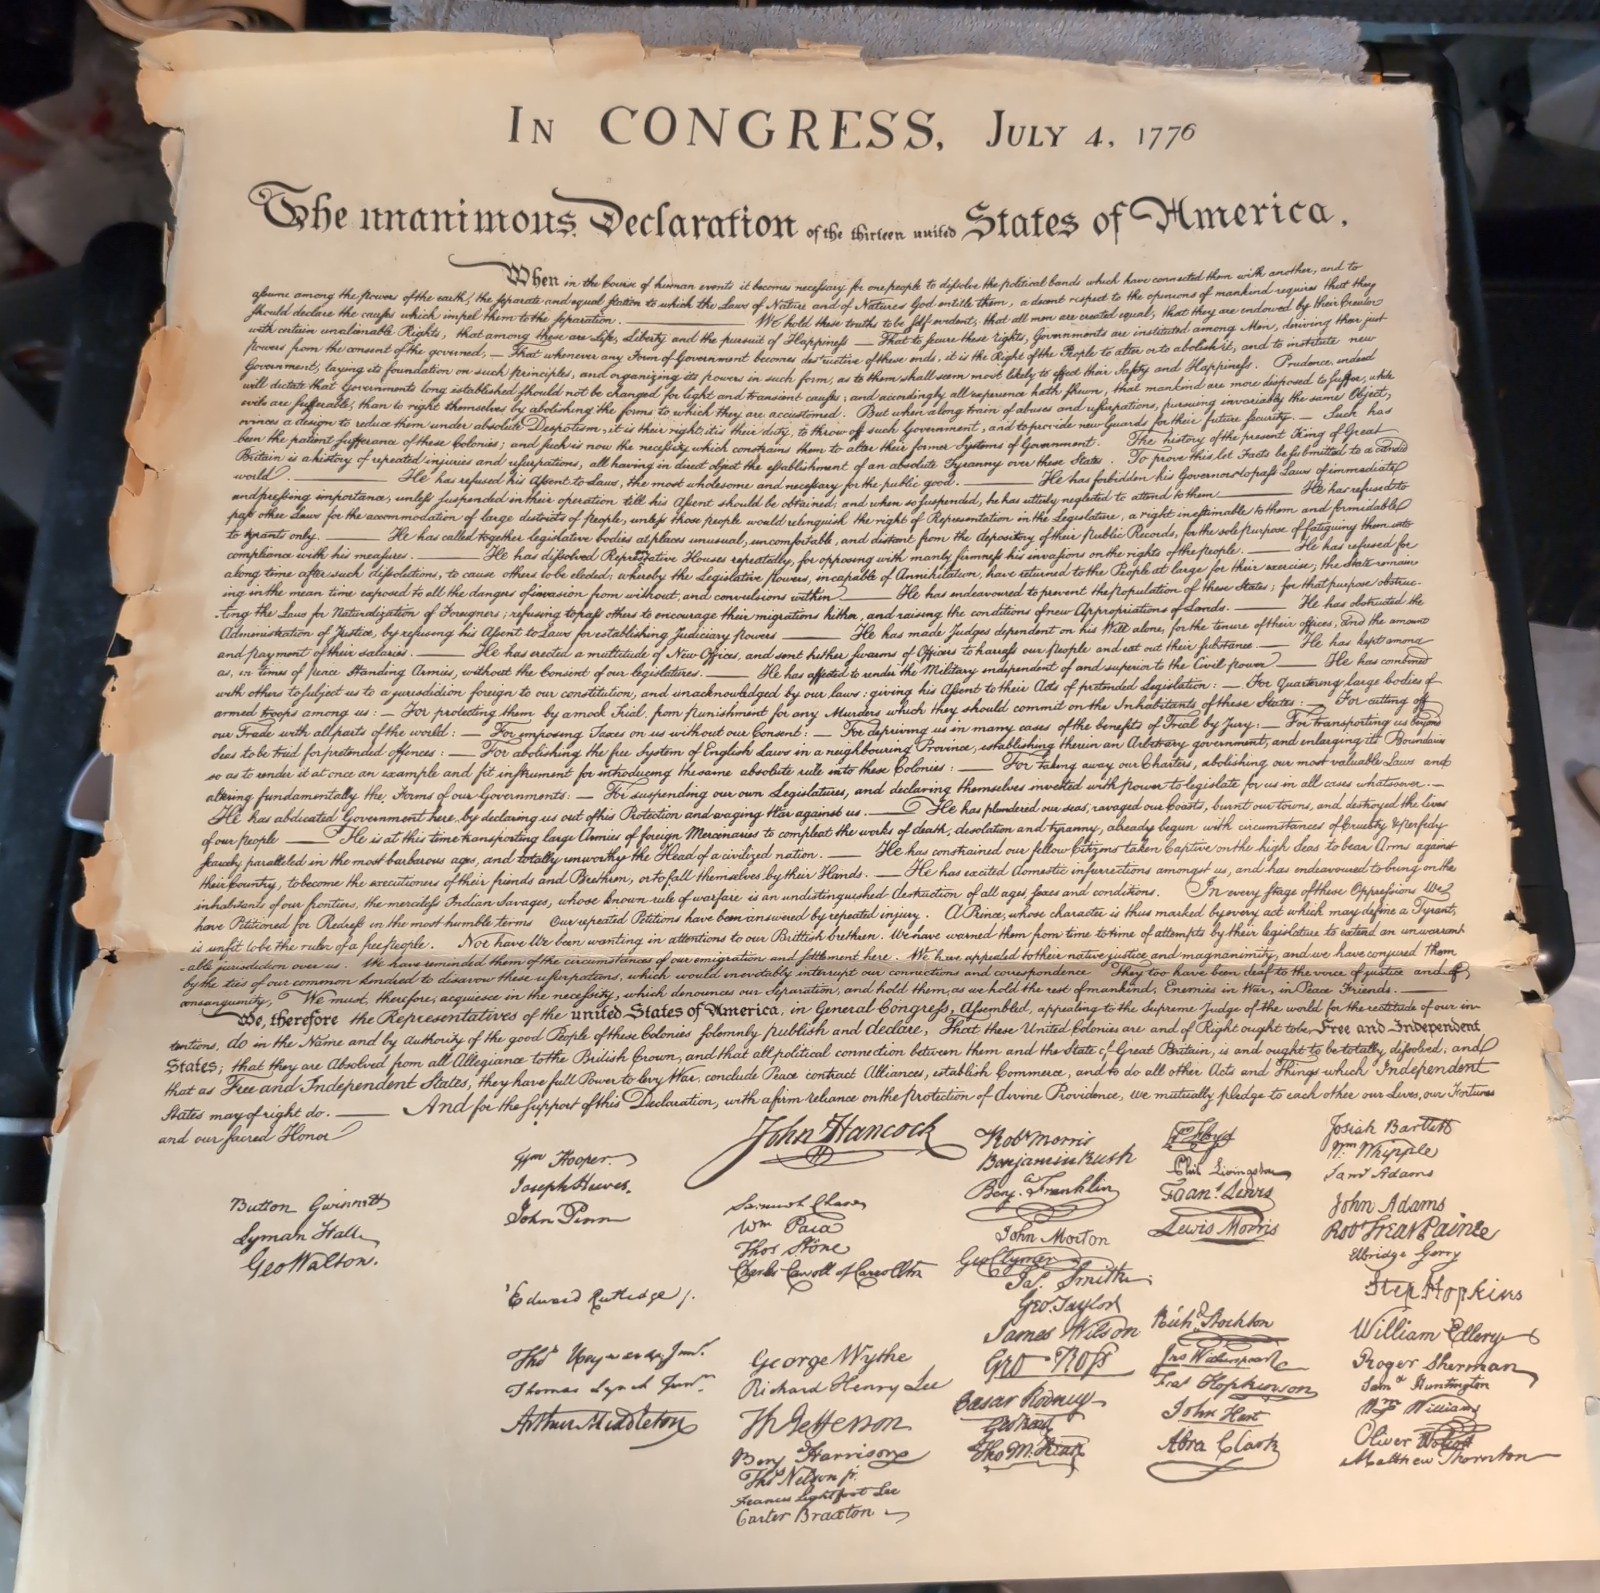 IN CONGRESS, JULY 4, 1776
The unanimous Declaration of the thirteen united States of America.
When in the Course of human events it becomes necessary for one people to dissolve the political bands which have connected them with another, and to
assume among the powers of the earth, the separate and equal station to which the Laws of Nature and of Nature's God entitle them, a decent respect to the opinions of mankind requires that they
should declare the causes which impel them to the separation. ——— We hold these truths to be self evident, that all men are created equal, that they are endowed by their Creator
with certain unalienable Rights, that among these are Life, Liberty and the pursuit of Happiness — That to secure these rights, Governments are instituted among Men, deriving their just
powers from the consent of the governed, — That whenever any Form of Government becomes destructive of these ends, it is the Right of the People to alter or to abolish it, and to institute new
Government, laying its foundation on such principles, and organizing its powers in such form, as to them shall seem most likely to effect their Safety and Happiness. Prudence, indeed
will dictate that Governments long established should not be changed for light and transient causes; and accordingly all experience hath shewn, that mankind are more disposed to suffer, while
evils are sufferable, than to right themselves by abolishing the forms to which they are accustomed. But when a long train of abuses and usurpations, pursuing invariably the same Object,
evinces a design to reduce them under absolute Despotism, it is their right, it is their duty, to throw off such Government, and to provide new Guards for their future security. — Such has
been the patient sufferance of these Colonies; and such is now the necessity which constrains them to alter their former Systems of Government. The history of the present King of Great
Britain is a history of repeated injuries and usurpations, all having in direct object the establishment of an absolute Tyranny over these States. To prove this let Facts be submitted to a candid
world. ——— He has refused his Assent to Laws, the most wholesome and necessary for the public good. ——— He has forbidden his Governors to pass Laws of immediate
and pressing importance, unless suspended in their operation till his Assent should be obtained; and when so suspended, he has utterly neglected to attend to them. ——— He has refused to
pass other Laws for the accommodation of large districts of people, unless those people would relinquish the right of Representation in the Legislature, a right inestimable to them and formidable
to tyrants only. ——— He has called together legislative bodies at places unusual, uncomfortable, and distant from the depository of their Public Records, for the sole purpose of fatiguing them into
compliance with his measures. ——— He has dissolved Representative Houses repeatedly, for opposing with manly firmness his invasions on the rights of the people. — He has refused for
a long time after such dissolutions, to cause others to be elected; whereby the Legislative powers, incapable of Annihilation, have returned to the People at large for their exercise; the State remain
ing in the mean time exposed to all the dangers of invasion from without, and convulsions within. ——— He has endeavoured to prevent the population of these States; for that purpose obstruc-
-ting the Laws for Naturalization of Foreigners; refusing to pass others to encourage their migrations hither, and raising the conditions of new Appropriations of Lands. ——— He has obstructed the
Administration of Justice, by refusing his Assent to Laws for establishing Judiciary powers ——— He has made Judges dependent on his Will alone, for the tenure of their offices, and the amount
and payment of their salaries. ——— He has erected a multitude of New Offices, and sent hither swarms of Officers to harass our people and eat out their substance. — He has kept among
us, in times of peace Standing Armies, without the Consent of our legislatures. ——— He has affected to render the Military independent of and superior to the Civil power. ——— He has combined
with others to subject us to a jurisdiction foreign to our constitution, and unacknowledged by our laws; giving his Assent to their Acts of pretended Legislation: — For quartering large bodies of
armed troops among us: — For protecting them by a mock Trial, from punishment for any Murders which they should commit on the Inhabitants of these States: — For cutting off
our Trade with all parts of the world: — For imposing Taxes on us without our Consent: — For depriving us in many cases of the benefits of Trial by Jury: — For transporting us beyond
Seas to be tried for pretended offences: — For abolishing the free System of English Laws in a neighbouring Province, establishing therein an Arbitrary government, and enlarging its Boundaries
so as to render it at once an example and fit instrument for introducing the same absolute rule into these Colonies: — For taking away our Charters, abolishing our most valuable Laws and
altering fundamentally the Forms of our Governments: — For suspending our own Legislatures, and declaring themselves invested with power to legislate for us in all cases whatsoever. —
He has abdicated Government here, by declaring us out of his Protection and waging War against us. ——— He has plundered our seas, ravaged our Coasts, burnt our towns, and destroyed the lives
of our people ——— He is at this time transporting large Armies of foreign Mercenaries to compleat the works of death, desolation and tyranny, already begun with circumstances of Cruelty & perfidy
scarcely paralleled in the most barbarous ages, and totally unworthy the Head of a civilized nation. ——— He has constrained our fellow Citizens taken Captive on the high Seas to bear Arms against
their Country, to become the executioners of their friends and Brethren, or to fall themselves by their Hands. — He has excited domestic insurrections amongst us, and has endeavoured to bring on the
inhabitants of our frontiers, the merciless Indian Savages, whose known rule of warfare is an undistinguished destruction of all ages, sexes and conditions. In every stage of these Oppressions We
have Petitioned for Redress in the most humble terms Our repeated Petitions have been answered by repeated injury. A Prince, whose character is thus marked by every act which may define a Tyrant,
is unfit to be the ruler of a free people. Nor have We been wanting in attentions to our Brittish brethren. We have warned them from time to time of attempts by their legislature to extend an unwarrant
-able jurisdiction over us. We have reminded them of the circumstances of our emigration and settlement here. We have appealed to their native justice and magnanimity, and we have conjured them
by the ties of our common kindred to disavow these usurpations, which would inevitably interrupt our connections and correspondence They too have been deaf to the voice of justice and of
consanguinity, We must, therefore, acquiesce in the necessity, which denounces our Separation, and hold them, as we hold the rest of mankind, Enemies in War, in Peace Friends. ———
We, therefore the Representatives of the united States of America, in General Congress, Assembled, appealing to the Supreme Judge of the world for the rectitude of our in-
tentions, do in the Name and by Authority of the good People of these Colonies solemnly publish and declare, That these United Colonies are and of Right ought to be Free and Independent
States; that they are Absolved from all Allegiance to the British Crown, and that all political connection between them and the State of Great Britain, is and ought to be totally dissolved; and
that as Free and Independent States, they have full Power to levy War, conclude Peace contract Alliances, establish Commerce, and to do all other Acts and Things which Independent
States may of right do. ——— And for the support of this Declaration, with a firm reliance on the protection of divine Providence, we mutually pledge to each other our Lives, our Fortunes
and our sacred Honor
Button Gwinnett
Lyman Hall
Geo Walton.
Wm Hooper
Joseph Hewes.
John Penn
Edward Rutledge /.
Thos Heyward Junr.
Thomas Lynch Junr.
Arthur Middleton
John Hancock
Samuel Chase
Wm Paca
Thos Stone
Charles Carroll of Carrollton
George Wythe
Richard Henry Lee
Th Jefferson
Benj Harrison
Thos Nelson jr.
Francis Lightfoot Lee
Carter Braxton
Robt Morris
Benjamin Rush
Benj. Franklin
John Morton
Geo Clymer
Jas. Smith
Geo. Taylor
James Wilson
Geo. Ross
Caesar Rodney
Geo Read
Tho M:Kean
Wm Floyd
Phil. Livingston
Frans. Lewis
Lewis Morris
Richd. Stockton
Jno Witherspoon
Fras. Hopkinson
John Hart
Abra Clark
Josiah Bartlett
Wm Whipple
Saml Adams
John Adams
Robt Treat Paine
Elbridge Gerry
Step. Hopkins
William Ellery
Roger Sherman
Saml Huntington
Wm Williams
Oliver Wolcott
Matthew Thornton